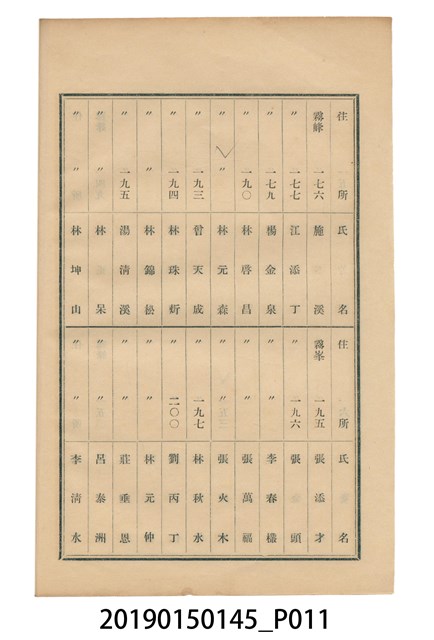 住所 氏名
霧峰 一七六 施溪
〃 一七七 江添丁
〃 一七九 楊金泉
〃 一九〇 林啓昌
〃 〃 林元森
〃 一九三 曾天成
〃 一九四 林珠炘
〃 〃 林錦松
〃 一九五 湯清溪
〃 〃 林呆
〃 〃 林坤山
住所 氏名
霧峯 一九五 張添才
〃 一九六 張頭
〃 〃 李春樣
〃 〃 張萬福
〃 〃 張火木
〃 一九七 林秋水
〃 二〇〇 劉丙丁
〃 〃 林元仲
〃 〃 莊垂恩
〃 〃 呂泰洲
〃 〃 李清水
20190150145_P011